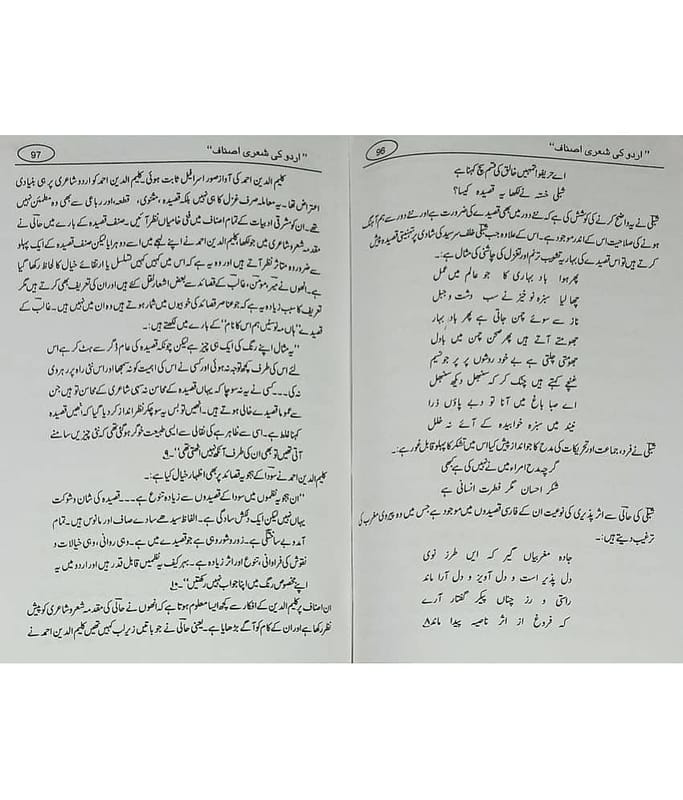 "اردو کی شعری اصناف"
96
اے حریفو! تمہیں خالق کی قسم سچ کہنا ہے
شبلی خستہ نے لکھا یہ قصیدہ کیسا؟
شبلی نے یہ واضح کرنے کی کوشش کی ہے کہ نئے دور میں بھی قصیدے کی ضرورت ہے اور نئے دور سے ہم آہنگ
ہونے کی صلاحیت اس کے اندر موجود ہے۔ اس کے علاوہ جب شبلی خلف سرسید کی شادی پر تہنیتی قصیدہ پیش
کرتے ہیں تو اس قصیدے کی بہاریہ تشبیب ترنم اور تغزل کی چاشنی کی مثال ہے:۔
پھر ہوا باد بہاری کا جو عالم میں عمل
چھا لیا سبزہ نو خیز نے سب دشت و جبل
ناز سے سوئے چمن جاتی ہے پھر باد بہار
جھومتے آتے ہیں پھر صحن چمن میں بادل
جھومتی چلتی ہے بے خود روشوں پر جو نسیم
غنچے کہتے ہیں چٹک کر کہ سنبھل دیکھ سنبھل
اے صبا باغ میں آنا تو دبے پاؤں ذرا
نیند میں سبزہ خوابیدہ کے آئے نہ خلل
شبلی نے فرد، جماعت اور تحریکات کی مدح کا جو انداز پیش کیا اس میں تشکر کا پہلو قابل غور ہے:۔
گرچہ مدح امراء میں نے نہیں کی ہے کبھی
شکر احسان مگر فطرت انسانی ہے
شبلی کی حالی سے اثر پذیری کی نوعیت ان کے فارسی قصیدوں میں موجود ہے جس میں وہ پیروی مغرب کی
ترغیب دیتے ہیں:۔
جادہ مغربیاں گیر کہ ایں طرز نوی
دل پذیر است و دل آویز و دل آرا ماند
راستی و رز چناں پیکر گفتار آرے
کہ فروغ از اثر ناصیہ پیدا ماند۸
"اردو کی شعری اصناف"
97
کلیم الدین احمد کی آواز صور اسرافیل ثابت ہوئی۔ کلیم الدین احمد کو اردو شاعری پر ہی بنیادی
اعتراض تھا۔ یہ معاملہ صرف غزل کا ہی نہیں بلکہ قصیدہ، مثنوی، قطعہ، اور رباعی سے بھی وہ مطمئن نہیں
تھے۔ ان کو مشرقی ادبیات کے تمام اصناف میں فنی خامیاں نظر آئیں۔ صنف قصیدہ کے بارے میں حالی نے
مقدمہ شعر و شاعری میں جو لکھا کلیم الدین احمد نے اپنے لہجے میں اسے دوہرایا لیکن صنف قصیدہ کے ایک پہلو
سے ضرور وہ متاثر نظر آتے ہیں اور وہ یہ ہے کہ اس میں کہیں کہیں تسلسل یا ارتقائے خیال کا لحاظ رکھا گیا
ہے۔ انھوں نے میر، مومن، غالب کے قصائد سے بعض اشعار نقل کئے ہیں اور ان کی تعریف بھی کرتے ہیں مگر
تعریف کا سبب زیادہ یہ ہے کہ جو عناصر قصائد کی خوبیوں میں شمار ہوتے ہیں وہ ان میں نہیں ہیں۔ غالب کے
قصیدے "ہاں مہ نو سنیں ہم اس کا نام" کے بارے میں لکھتے ہیں:۔
"یہ مثال اپنے رنگ کی ایک ہی چیز ہے لیکن چونکہ قصیدہ کی عام ڈگر سے ہٹ کر ہے اس
لئے اس کی طرف کچھ توجہ نہ ہوئی اور کسی نے اس کی اہمیت کو نہ سمجھا اور اس نئی راہ پر رہروی
نہ کی... کسی نے یہ نہ سوچا کہ یہاں قصیدہ کے محاسن نہ سہی شاعری کے محاسن تو ہیں جن
سے عموماً قصیدے خالی ہوتے ہیں۔ انھیں تو بس یہ سوچ کر نظر انداز کر دیا گیا کہ انھیں قصیدہ
کہنا غلط ہے۔ اسی سے ظاہر ہے کی نقالی سے ایسی طبیعت خوگر ہوگئی تھی کہ نئی چیزیں سامنے
آتی تھیں تو بھی ان کی طرف آنکھ نہیں اٹھتی تھی"۔۹
کلیم الدین احمد نے سودا کے ہجویہ قصائد پر بھی اظہار خیال کیا ہے:۔
"ان ہجویہ نظموں میں سودا کے قصیدوں سے زیادہ تنوع ہے... قصیدہ کی شان و شوکت
یہاں نہیں لیکن ایک دلکش سادگی ہے۔ الفاظ سیدھے سادے صاف اور مانوس ہیں۔ تمام
آمد و بے ساختگی ہے۔ زور و شور وہی ہے جو قصیدے میں ہے۔ وہی روانی، وہی خیالات و
نقوش کی فراوانی، تنوع اور اثر زیادہ ہے۔ بہر کیف یہ نظمیں قابل قدر ہیں اور اردو میں یہ
اپنے مخصوص رنگ میں اپنا جواب نہیں رکھتیں"۔۱۰
ان اصناف پر کلیم الدین کے افکار سے کچھ ایسا معلوم ہوتا ہے کہ انھوں نے حالی کی مقدمہ شعر و شاعری کو پیش
نظر رکھا ہے اور ان کے کام کو آگے بڑھایا ہے۔ یعنی حالی نے جو باتیں زیر لب کہیں تھیں کلیم الدین احمد نے